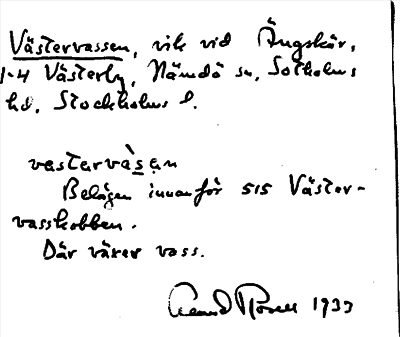 Västervassen, vik vid Ängskär,
1-4 Västerby, Nämdö sn, Sotholms
hd, Stockholms l.
västarvàsan
Belägen innanför 515 Väster-
vasskobben.
Där växer vass.
1933